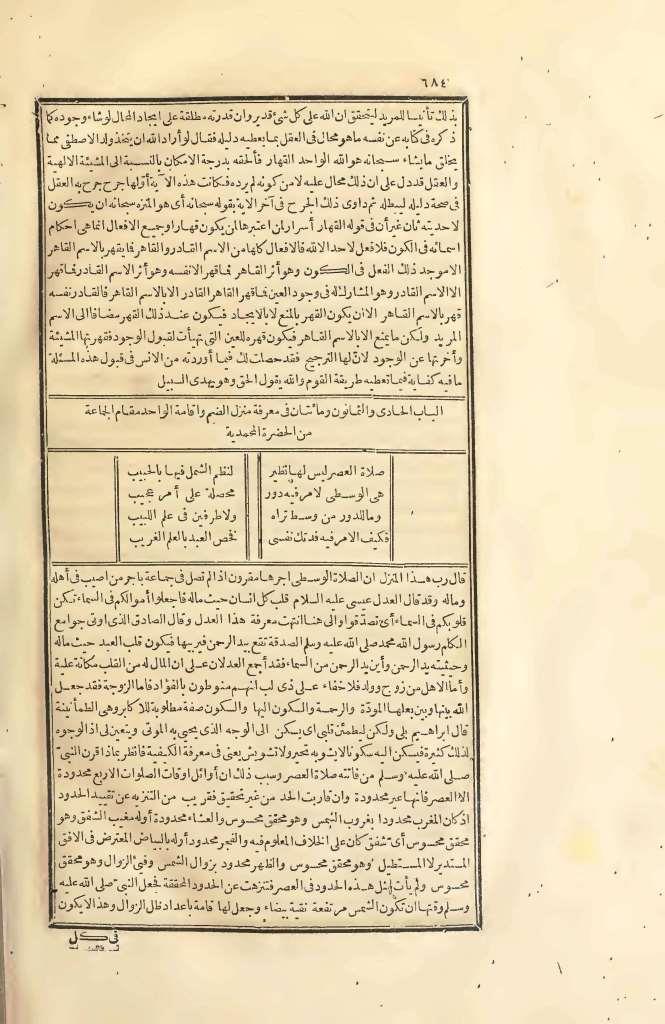 ٦٨٤
بذلك تأنيسا للمريد ليتحقق ان الله على كل شئ قدير وان قدرته مطلقة على ايجاد المحال لوشاء وجوده كما
ذكره فى كتابه عن نفسه ما هو محال فى العقل بما يعطيه دليله فقال لوأراد الله ان يتخذ ولدا لاصطفى مما
يخلق مايشاء سبحانه هو الله الواحد القهار فألحقه بدرجة الامكان بالنسبة الى المشيئة الالهية
والعقل قد دل على ان ذلك محال عليه لا من كونه لم يرده فكانت هذه الآية أولها جرح جرح به العقل
فى صحة دليله ليبطله ثم داوى ذلك الجرح فى آخر الاية بقوله سبحانه أى هو المنزه سبحانه ان يكون
لاحديته ثان غير أن فى قوله القهار أسرار لمن اعتبرها لمن يكون قهارا وجميع الافعال انما هى احكام
اسمائه فى الكون فلا فعل لاحد الا لله فالافعال كلها من الاسم القادر والقاهر فما يقهر بالاسم القاهر
الا موجد ذلك الفعل فى الكون وهو أثر القاهر فما قهر الا نفسه وهو أثر الاسم القادر فما قهر
الا الاسم القادر وهو المشارك له فى وجود العين فما قهر القاهر القادر الا بالاسم القاهر فالقادر نفسه
قهر بالاسم القاهر الا ان يكون القهر بالمنع لا بالايجاد فيكون عند ذلك القهر مضافا الى الاسم
المريد ولكن ما يمنع الا بالاسم القاهر فيكون قهره للعين التى تهيأت لقبول الوجود فقهرتها المشيئة
وأخرتها عن الوجود لانّ لها الترجيح فقد حصلت لك فيما أوردته من الانس فى قبول هذه المسئلة
ما فيه كفاية فيما تعطيه طريقة القوم والله يقول الحق وهو يهدى السبيل
الباب الحادى والثمانون ومائتان فى معرفة منزل الضم واقامة الواحد مقام الجماعة
من الحضرة المحمدية
صلاة العصر ليس لها نظير لنظم الشمل فيها بالحبيب
هى الوسطى لامر فيه دور محصلة على أمر عجيب
وما للدور من وسط تراه ولا طرفين فى علم اللبيب
فكيف الامر فيه فدتك نفسى فخص العبد بالعلم الغريب
قال رب هذا المنزل ان الصلاة الوسطى اجرها مقرون اذا لم تصل فى جماعة باجر من اصيب فى أهله
وماله وقد قال العدل عيسى عليه السلام قلب كل انسان حيث ماله فاجعلوا أموالكم فى السماء تكن
قلوبكم فى السماء أى تصدّقوا والى هنا انتهت معرفة هذا العدل وقال الصادق الذى اوتى جوامع
الكلم رسول الله محمد صلى الله عليه وسلم الصدقة تقع بيد الرحمن فيربيها فيكون قلب العبد حيث ماله
وحيثيته يد الرحمن وأين يد الرحمن من السماء فقد أجمع العدلان على ان المال له من القلب مكانة علية
وأما الاهل من زوج وولد فلا خفاء على ذى لب انهم منوطون بالفؤاد فاما الزوجة فقد جعل
الله بينها وبين بعلها المودّة والرحمة والسكون اليها والسكون صفة مطلوبة للاكابر وهى الطمأنينة
قال ابراهيم بلى ولكن ليطمئن قلبى اى يسكن الى الوجه الذى يحيى به الموتى ويتعين لى اذ الوجوه
لذلك كثيرة فيسكن اليه سكونا لا يشوبه تحير ولا تشويش يعنى فى معرفة الكيفية فانظر بماذا قرن النبىّ
صلى الله عليه وسلم من فاتته صلاة العصر وسبب ذلك ان أوائل اوقات الصلوات الاربع محدودة
الا العصر فانها غير محدودة وان قاربت الحد من غير تحقيق فقريب من التنزيه عن تقييد الحدود
اذ كان المغرب محدودا بغروب الشمس وهو محقق محسوس والعشاء محدودة أوله بمغيب الشفق وهو
محقق محسوس أى شفق كان على الخلاف المعلوم فيه والفجر محدود أوله بالبياض المعترض فى الافق
المستدير لا المستطيل وهو محقق محسوس والظهر محدود بزوال الشمس وفئ الزوال وهو محقق
محسوس ولم يأت مثل هذه الحدود فى العصر فتنزهت عن الحدود المحققة فجعل النبىّ صلى الله عليه
وسلم وقتها ان تكون الشمس مرتفعة نقية بيضاء وجعل لها قامة باعداد ظل الزوال وهذا لا يكون
فى كل